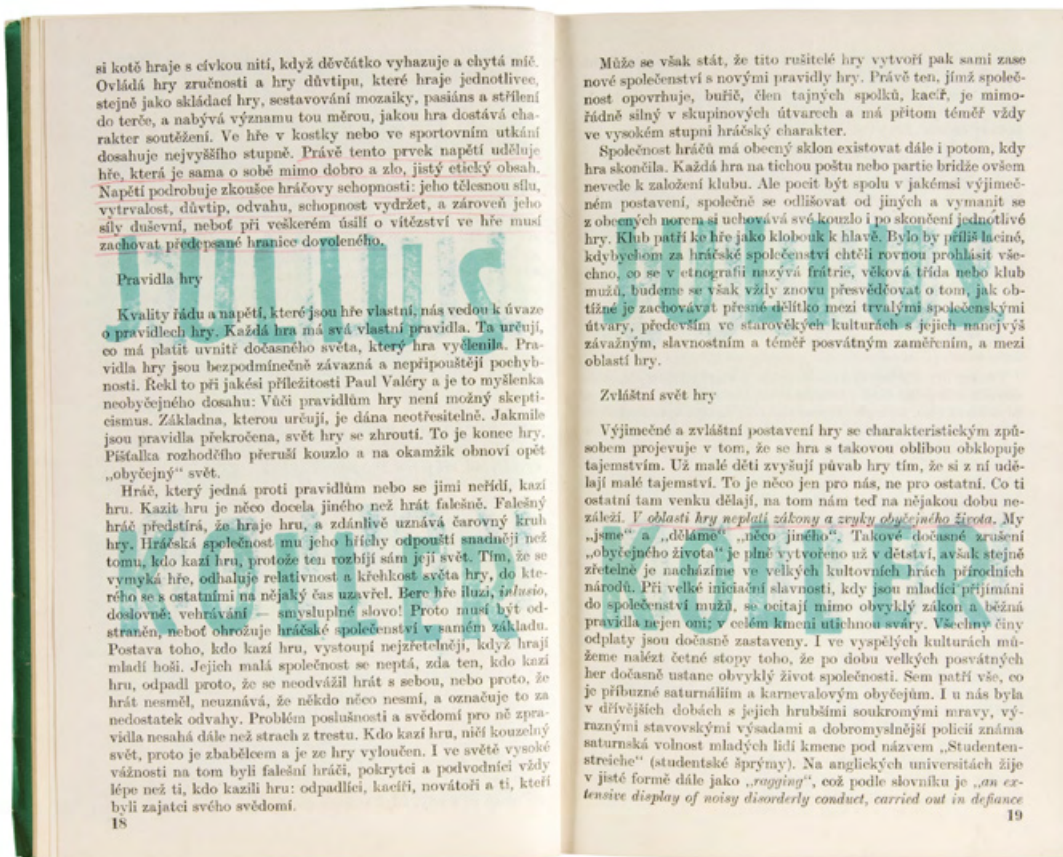 si kotě hraje s cívkou nití, když děvčátko vyhazuje a chytá míč.
Ovládá hry zručnosti a hry důvtipu, které hraje jednotlivec,
stejně jako skládací hry, sestavování mozaiky, pasiáns a střílení
do terče, a nabývá významu tou měrou, jakou hra dostává cha-
rakter soutěžení. Ve hře v kostky nebo ve sportovním utkání
dosahuje nejvyššího stupně. Právě tento prvek napětí uděluje
hře, která je sama o sobě mimo dobro a zlo, jistý etický obsah.
Napětí podrobuje zkoušce hráčovy schopnosti: jeho tělesnou sílu,
vytrvalost, důvtip, odvahu, schopnost vydržet, a zároveň jeho
síly duševní, neboť při veškerém úsilí o vítězství ve hře musí
zachovat předepsané hranice dovoleného.
JULIUS
Pravidla hry
Kvality řádu a napětí, které jsou hře vlastní, nás vedou k úvaze
o pravidlech hry. Každá hra má svá vlastní pravidla. Ta určují,
co má platit uvnitř dočasného světa, který hra vyčlenila. Pra-
vidla hry jsou bezpodmínečně závazná a nepřipouštějí pochyb-
nosti. Řekl to při jakési příležitosti Paul Valéry a je to myšlenka
neobyčejného dosahu: Vůči pravidlům hry není možný skepti-
cismus. Základna, kterou určují, je dána neotřesitelně. Jakmile
jsou pravidla překročena, svět hry se zhroutí. To je konec hry.
Píšťalka rozhodčího přeruší kouzlo a na okamžik obnoví opět
„obyčejný“ svět.
Hráč, který jedná proti pravidlům nebo se jimi neřídí, kazí
hru. Kazit hru je něco docela jiného než hrát falešně. Falešný
hráč předstírá, že hraje hru, a zdánlivě uznává čarovný kruh
hry. Hráčská společnost mu jeho hříchy odpouští snadněji než
tomu, kdo kazí hru, protože ten rozbíjí sám její svět. Tím, že se
vymyká hře, odhaluje relativnost a křehkost světa hry, do kte-
rého se s ostatními na nějaký čas uzavřel. Bere hře iluzi, inlusio,
doslovně: vehrávání – smysluplné slovo! Proto musí být od-
straněn, neboť ohrožuje hráčské společenství v samém základu.
KOLLER
Postava toho, kdo kazí hru, vystoupí nejzřetelněji, když hrají
mladí hoši. Jejich malá společnost se neptá, zda ten, kdo kazí
hru, odpadl proto, že se neodvážil hrát s sebou, nebo proto, že
hrát nesměl, neuznává, že někdo něco nesmí, a označuje to za
nedostatek odvahy. Problém poslušnosti a svědomí pro ně zpra-
vidla nesahá dále než strach z trestu. Kdo kazí hru, ničí kouzelný
svět, proto je zbabělcem a je ze hry vyloučen. I ve světě vysoké
vážnosti na tom byli falešní hráči, pokrytci a podvodníci vždy
lépe než ti, kdo kazili hru: odpadlíci, kacíři, novátoři a ti, kteří
byli zajatci svého svědomí.
18
Může se však stát, že tito rušitelé hry vytvoří pak sami zase
nové společenství s novými pravidly hry. Právě ten, jímž společ-
nost opovrhuje, buřič, člen tajných spolků, kacíř, je mimo-
řádně silný v skupinových útvarech a má přitom téměř vždy
ve vysokém stupni hráčský charakter.
Společnost hráčů má obecný sklon existovat dále i potom, kdy
hra skončila. Každá hra na tichou poštu nebo partie bridže ovšem
nevede k založení klubu. Ale pocit být spolu v jakémsi výjimeč-
ném postavení, společně se odlišovat od jiných a vymanit se
z obecných norem si uchovává své kouzlo i po skončení jednotlivé
hry. Klub patří ke hře jako klobouk k hlavě. Bylo by příliš laciné,
kdybychom za hráčské společenství chtěli rovnou prohlásit vše-
chno, co se v etnografii nazývá frátrie, věková třída nebo klub
mužů, budeme se však vždy znovu přesvědčovat o tom, jak ob-
tížné je zachovávat přesné dělítko mezi trvalými společenskými
útvary, především ve starověkých kulturách s jejich nanejvýš
závažným, slavnostním a téměř posvátným zaměřením, a mezi
oblastí hry.
JULIUS
Zvláštní svět hry
Výjimečné a zvláštní postavení hry se charakteristickým způ-
sobem projevuje v tom, že se hra s takovou oblibou obklopuje
tajemstvím. Už malé děti zvyšují půvab hry tím, že si z ní udě-
lají malé tajemství. To je něco jen pro nás, ne pro ostatní. Co ti
ostatní tam venku dělají, na tom nám teď na nějakou dobu ne-
záleží. V oblasti hry neplatí zákony a zvyky obyčejného života. My
„jsme“ a „děláme“ „něco jiného“. Takové dočasné zrušení
„obyčejného života“ je plně vytvořeno už v dětství, avšak stejně
zřetelně je nacházíme ve velkých kultovních hrách přírodních
národů. Při velké iniciační slavnosti, kdy jsou mladíci přijímáni
do společenství mužů, se ocitají mimo obvyklý zákon a běžná
pravidla nejen oni; v celém kmeni utichnou sváry. Všechny činy
odplaty jsou dočasně zastaveny. I ve vyspělých kulturách mů-
KOLLER
žeme nalézt četné stopy toho, že po dobu velkých posvátných
her dočasně ustane obvyklý život společnosti. Sem patří vše, co
je příbuzné saturnáliím a karnevalovým obyčejům. I u nás byla
v dřívějších dobách s jejich hrubšími soukromými mravy, vý-
raznými stavovskými výsadami a dobromyslnější policií známa
saturnská volnost mladých lidí kmene pod názvem „Studenten-
streiche“ (studentské šprýmy). Na anglických universitách žije
v jisté formě dále jako „ragging“, což podle slovníku je „an ex-
tensive display of noisy disorderly conduct, carried out in defiance
19